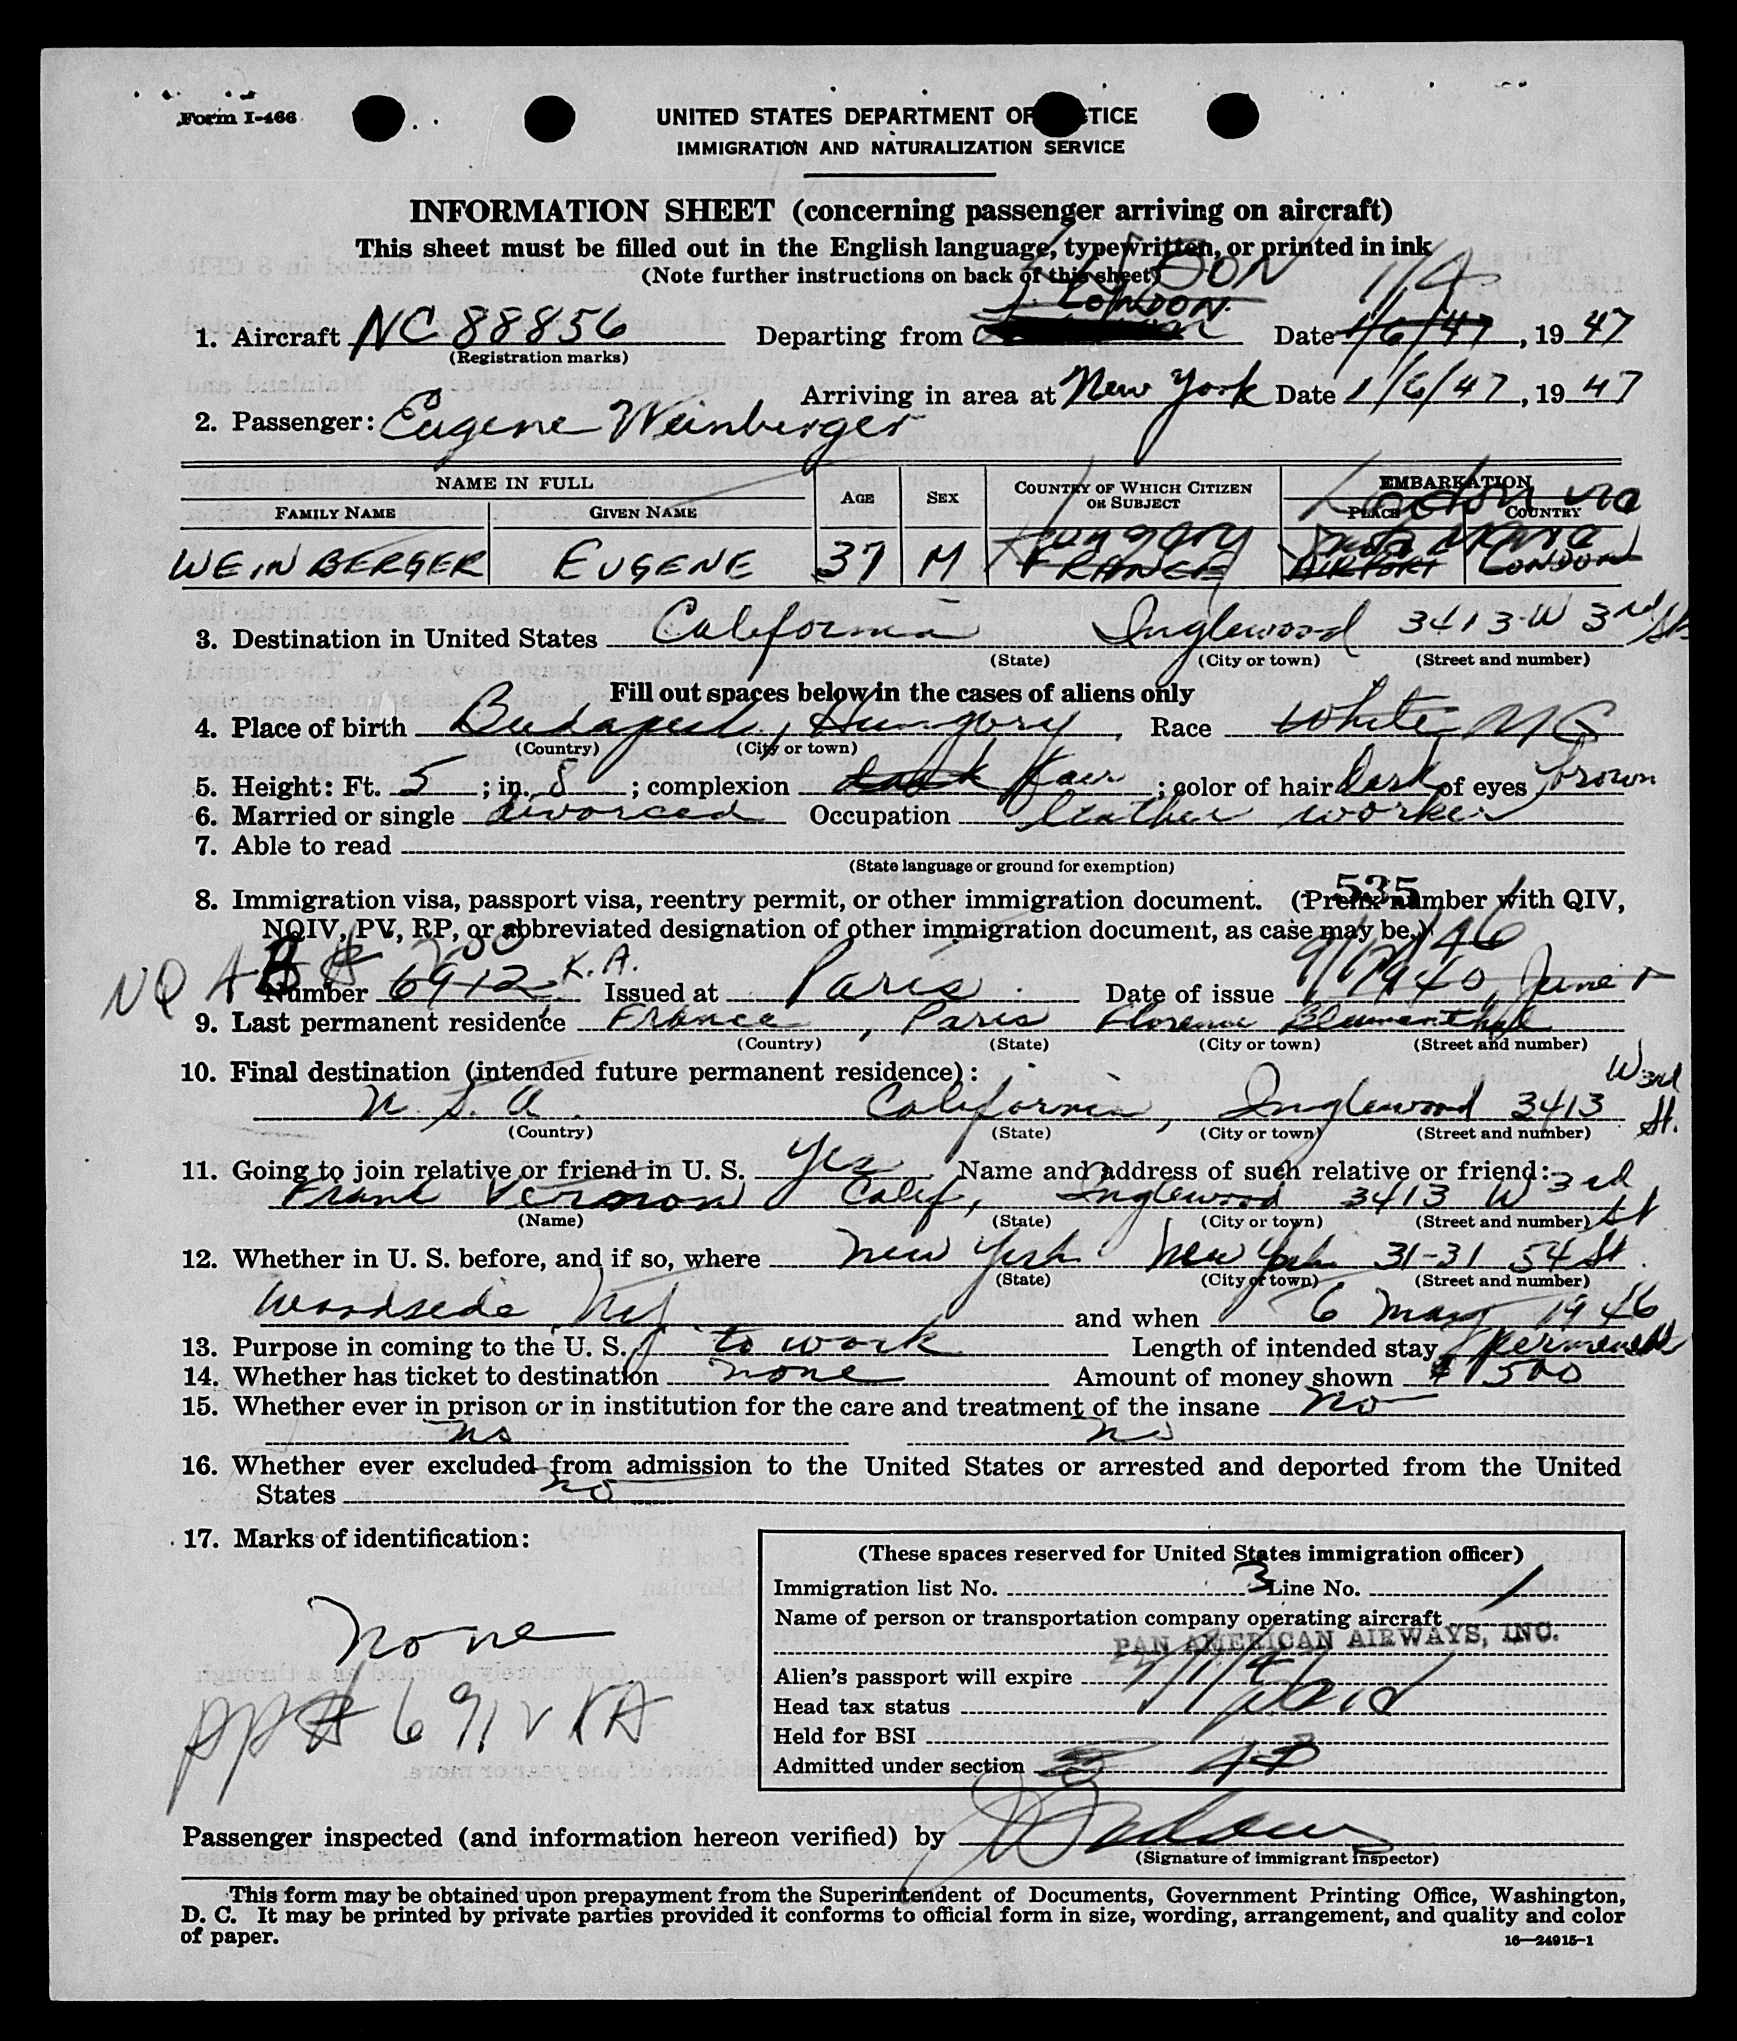 Form I-466
UNITED STATES DEPARTMENT OF JUSTICE
IMMIGRATION AND NATURALIZATION SERVICE
INFORMATION SHEET (concerning passenger arriving on aircraft)
This sheet must be filled out in the English language, typewritten, or printed in ink
(Note further instructions on back of this sheet)
LISBON 1/4
LONDON
1. Aircraft NC 88856 Departing from Date 1/6/47, 19 47
(Registration marks)
Arriving in area at New York Date 1/6/47, 19 47
2. Passenger: Eugene Weinberger
NAME IN FULL AGE SEX COUNTRY OF WHICH CITIZEN OR SUBJECT EMBARKATION
FAMILY NAME GIVEN NAME PLACE COUNTRY
London
Hungary
WEINBERGER EUGENE 37 M FRANCE AIRPORT LONDON
3. Destination in United States California Inglewood 3413 W 3rd St
(State) (City or town) (Street and number)
Fill out spaces below in the cases of aliens only
4. Place of birth Budapest, Hungory Race White
(Country) (City or town)
5. Height: Ft. 5; in. 8; complexion dark fair; color of hair Dark of eyes brown
6. Married or single divorced Occupation leather worker
7. Able to read
(State language or ground for exemption)
535
8. Immigration visa, passport visa, reentry permit, or other immigration document. (Prefix number with QIV,
NQIV, PV, RP, or abbreviated designation of other immigration document, as case may be.)
Number 6912 K.A. Issued at Paris Date of issue 1940, June
9. Last permanent residence France, Paris Florence Blumenthal
(Country) (State) (City or town) (Street and number)
10. Final destination (intended future permanent residence):
U.S.A. California, Inglewood 3413 W 3rd St.
(Country) (State) (City or town) (Street and number)
11. Going to join relative or friend in U. S. Yes Name and address of such relative or friend:
Frank Vernon Calif, Inglewood 3413 W 3rd St
(Name) (State) (City or town) (Street and number)
12. Whether in U. S. before, and if so, where New York New York 31-31 54 St.
(State) (City or town) (Street and number)
Woodside NY and when 6 May 1946
13. Purpose in coming to the U. S. to work Length of intended stay permenent
14. Whether has ticket to destination none Amount of money shown $ 1500
15. Whether ever in prison or in institution for the care and treatment of the insane No
No No
16. Whether ever excluded from admission to the United States or arrested and deported from the United
States no
17. Marks of identification:
none
PP# 6912 KA
(These spaces reserved for United States immigration officer)
Immigration list No. 3 Line No. 1
Name of person or transportation company operating aircraft
PAN AMERICAN AIRWAYS, INC.
Alien's passport will expire
Head tax status paid
Held for BSI
Admitted under section
Passenger inspected (and information hereon verified) by
(Signature of immigrant inspector)
This form may be obtained upon prepayment from the Superintendent of Documents, Government Printing Office, Washington,
D. C. It may be printed by private parties provided it conforms to official form in size, wording, arrangement, and quality and color
of paper.
16—24915-1